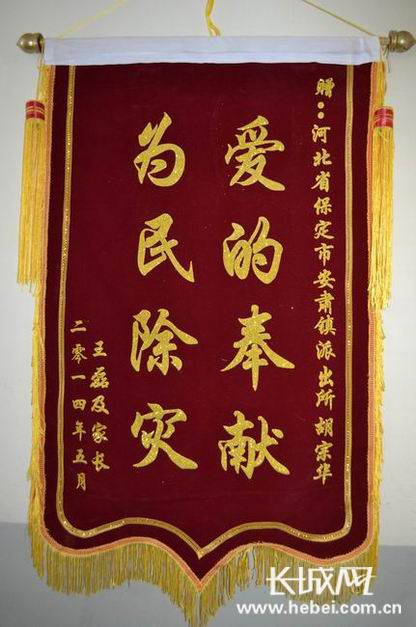 赠：河北省保定市安肃镇派出所胡宗华
爱的奉献
为民除灾
王磊及家长
二零一四年五月
长城网
www.hebei.com.cn